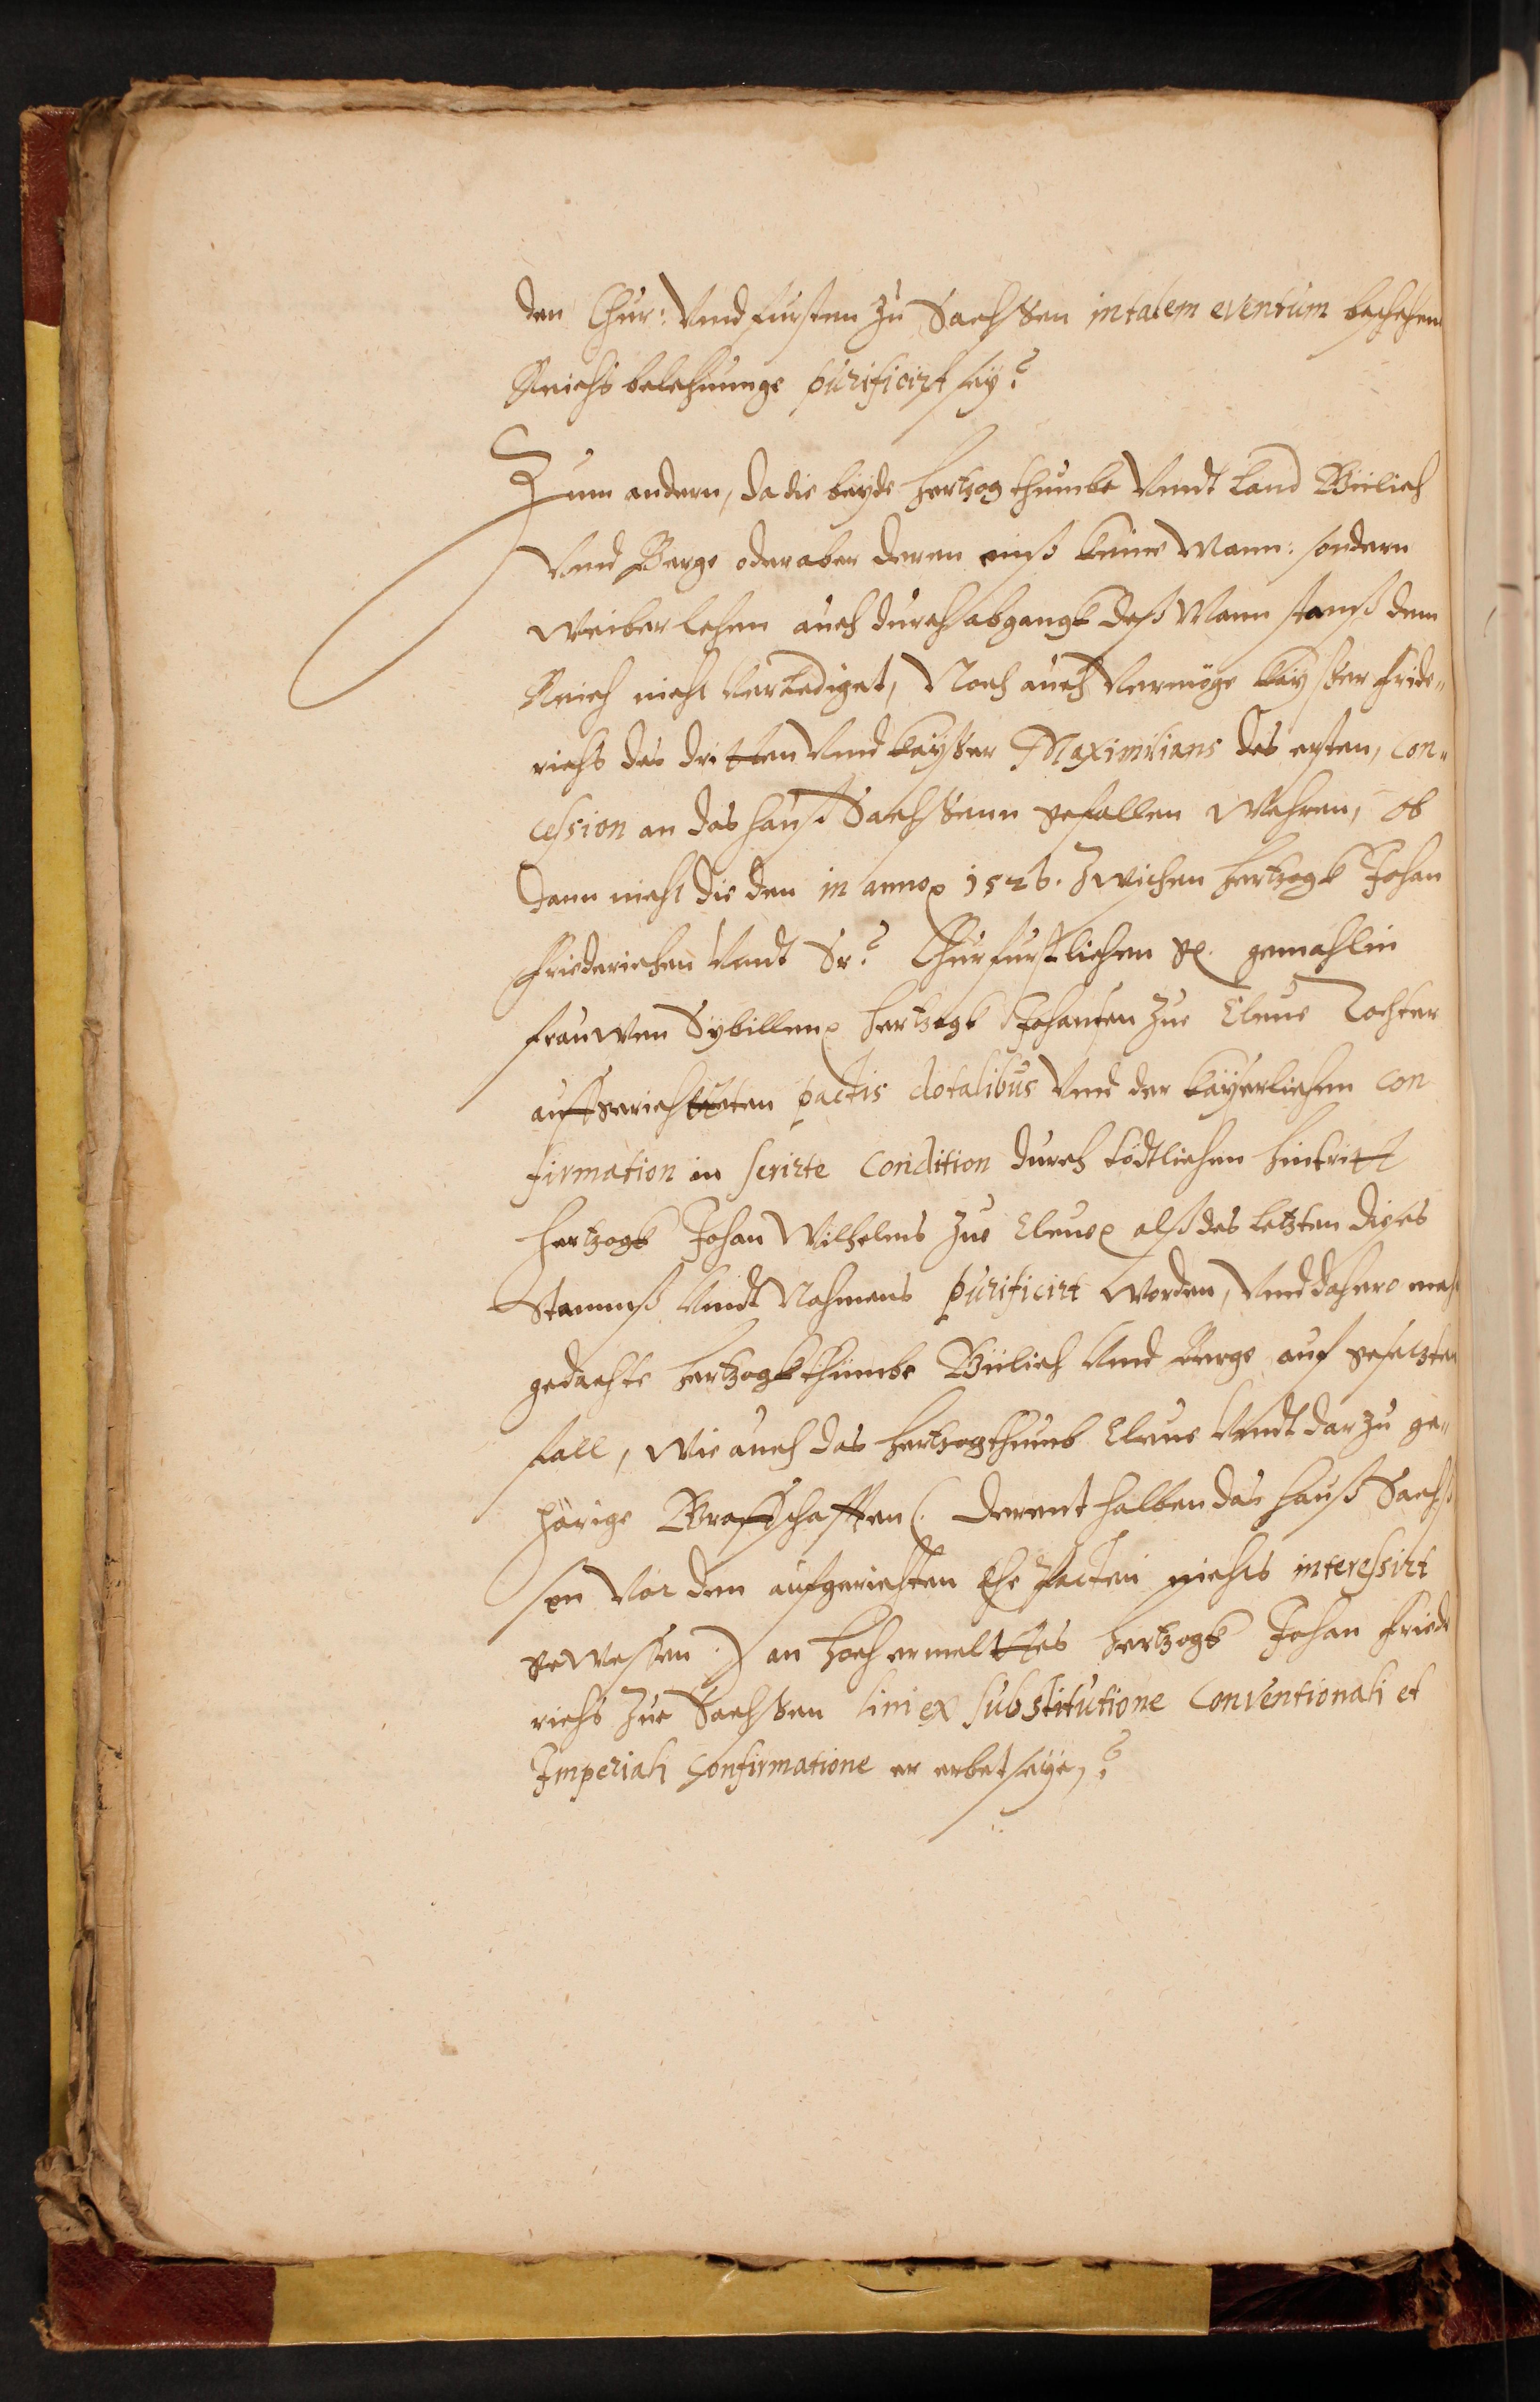 den Chur: Vnd fursten zu Sachssen in talem eventum beschehene
Reichs belehnunge purificirt sey?
Zum andern, da die beyde hertzogthumbe Vnndt Land Gülich
Vnd Berge oder aber deren eins keine Mann: sondern
Weiber lehen auch durch abgangk deß Mann stamß dem
Reich nicht Verlediget, Noch auch Vermöge kaysser fride„
richs des dritten Vnd kaysser Maximilians des ersten, con„
cession an das hauß Sachssenn gefallen Wehren, Ob
dann nicht die den in anno 1526. Zwischen hertzogk Johan
friederichen Vnndt Sr: Churfurstlichen g. gemahlin
frauwen Sybillen hertzogk Johansen zue Cleue Tochter
auffgerichteten pactis dotalibus Vnd der kayserlichen con
firmation in serirte condition durch tödtlichen hintritt
hertzogk Johan Wilhelms zue Cleue alß des letzten dises
Stammß Vnndt Nahmens purificirt Worden, Vnd dahero mehr
gedachte hertzogkthumbe Gülich Vnd Berge auf gesetzten
fall, Wie auch das hertzogthumb Cleue Vnndt darzu ge„
hörige Graffschafften (. derent halben das hauß Sachs
sen Vor den aufgerichten Ehe Pacten nichts interessirt
geWessen .) an hochermeltes hertzogk Johan friede
richs zue Sachssen lini ex substitutione conventionali et
Imperiali confirmatione ererbet seye,?